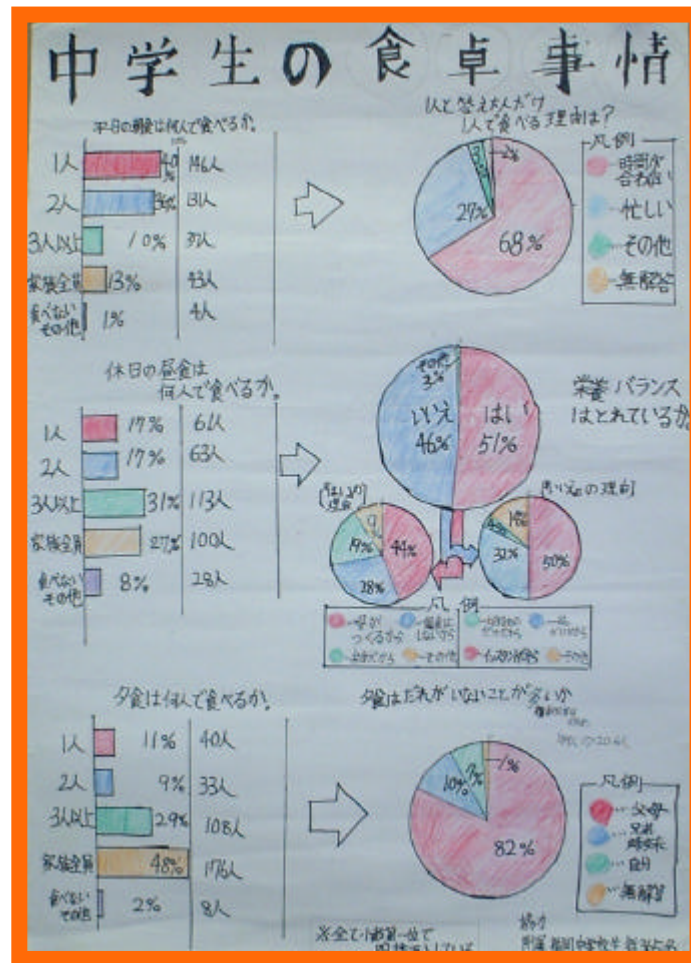 中学生の食卓事情
平日の朝食は何人で食べるか。
1人 40% 146人
2人 36% 131人
3人以上 10% 37人
家族全員 13% 43人
食べない その他 1% 4人
1人と答えた人だけ
1人で食べる理由は?
2%
27%
68%
凡例
時間が
合わない
忙しい
その他
無解答
休日の昼食は
何人で食べるか。
1人 17% 61人
2人 17% 63人
3人以上 31% 113人
家族全員 27% 100人
食べない その他 8% 28人
栄養バランス
はとれているか
その他
3%
いいえ
46%
はい
51%
「はい」の
理由
9%
19%
44%
28%
「いいえ」の理由
14%
4%
32%
50%
凡例
つくるから
しないから
その他
その他
夕食は何人で食べるか。
1人 11% 40人
2人 9% 33人
3人以上 29% 108人
家族全員 48% 176人
食べない その他 2% 8人
夕食はだれがいないことが多いか
1%
7%
10%
82%
凡例
父母
兄弟
姉妹
自分
無解答
※全て小数第一位で
協力